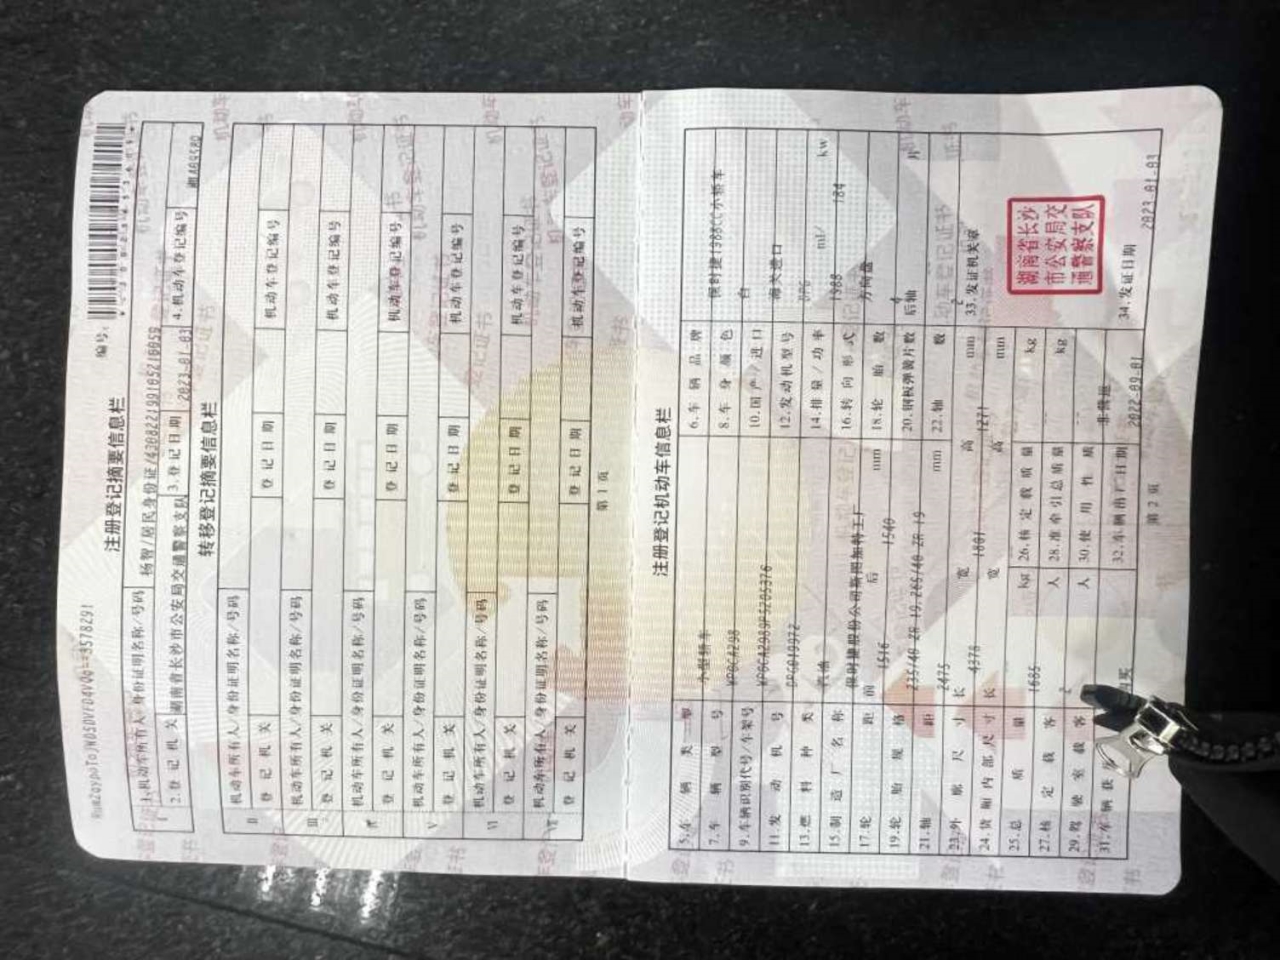 注册登记摘要信息栏
编号:
1.机动车所有人/身份证明名称/号码 杨智/居民身份证/430822199105210059
2.登记机关 湖南省长沙市公安局交通警察支队 3.登记日期 2023-01-03 4.机动车登记编号
转移登记摘要信息栏
II 机动车所有人/身份证明名称/号码
登记机关 登记日期 机动车登记编号
III 机动车所有人/身份证明名称/号码
登记机关 登记日期 机动车登记编号
IV 机动车所有人/身份证明名称/号码
登记机关 登记日期 机动车登记编号
V 机动车所有人/身份证明名称/号码
登记机关 登记日期 机动车登记编号
VI 机动车所有人/身份证明名称/号码
登记机关 登记日期 机动车登记编号
VII 机动车所有人/身份证明名称/号码
登记机关 登记日期 机动车登记编号
第1页
注册登记机动车信息栏
5.车辆类型 小型轿车 6.车辆品牌
7.车辆型号 WP0CA298 8.车身颜色 白
9.车辆识别代号/车架号 10.国产/进口 海关进口
11.发动机号 12.发动机型号
13.燃料种类 汽油 14.排量/功率 1988 ml/ 184 kw
15.制造厂名称 保时捷股份公司斯图加特工厂 16.转向形式 方向盘
17.轮距 前 1516 后 1540 mm 18.轮胎数 4
19.轮胎规格 235/40 ZR 19,265/40 ZR 19 20.钢板弹簧片数 后轴 片
21.轴距 2475 mm 22.轴数 2
23.外廓尺寸 长 4378 宽 1801 高 1271 mm 33.发证机关章
24.货厢内部尺寸 长 宽 高 mm
25.总质量 1685 kg 26.核定载质量 kg
27.核定载客 2 人 28.准牵引总质量 kg
29.驾驶室载客 人 30.使用性质 非营运
31.车辆获 购买 32.车辆出厂日期 2022-09-01 34.发证日期 2023-01-03
湖南省长沙
市公安局交
通警察支队
第2页